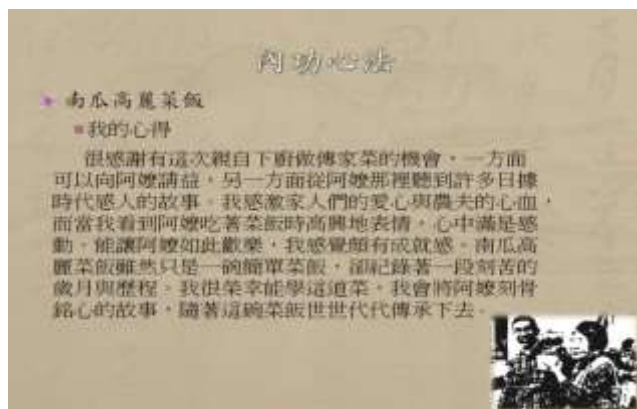 內功心法
南瓜高麗菜飯
我的心得
很感謝有這次親自下廚做傳家菜的機會，一方面
可以向阿嬤請益，另一方面從阿嬤那裡聽到許多日據
時代感人的故事。我感激家人們的愛心與農夫的心血，
而當我看到阿嬤吃著菜飯時高興地表情，心中滿是感
動。能讓阿嬤如此歡樂，我感覺頗有成就感。南瓜高
麗菜飯雖然只是一碗簡單菜飯，卻記錄著一段刻苦的
歲月與歷程。我很榮幸能學這道菜，我會將阿嬤刻骨
銘心的故事，隨著這碗菜飯世世代代傳承下去。